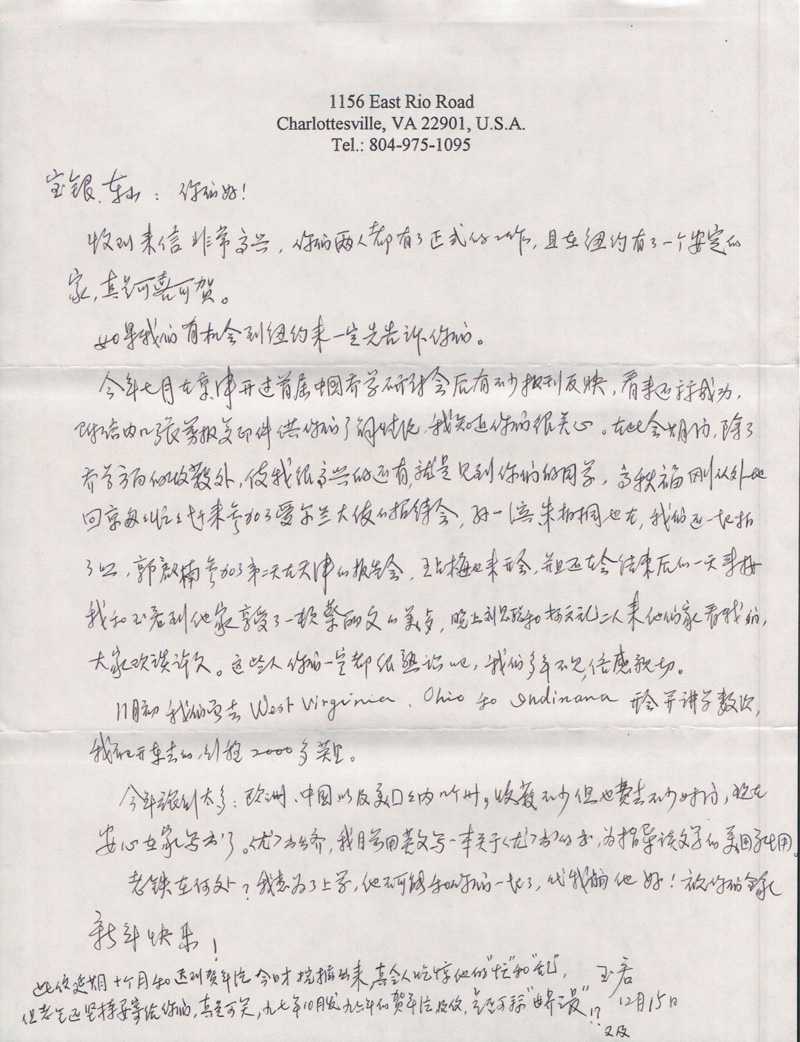 1156 East Rio Road
Charlottesville, VA 22901, U.S.A.
Tel.: 804-975-1095
宝银、东山：你们好！
收到来信非常高兴，你们两人都有了正式的工作，且在纽约有了一个安定的
家，真是可喜可贺。
如果我们有机会到纽约来一定先告诉你们。
今年七月在京津开过首届中国乔学研讨会后有不少报刊反映，看来还算成功，
附信内几张剪报复印件供你们了解情况，我知道你们很关心。在此会期间，除了
乔学方面的收获外，使我很高兴的还有就是见到你们的同学，高秋福刚从外地
回京匆匆赶来参加了爱尔兰大使的招待会，孙一 朱 也在，我们还一起拍
了照，郭启楠参加了第二天在天津的报告会，王占梅也来开会，并且还在会结束后的一天来接
我和玉若到他家享受了一顿蔡丽文的美歺，晚上刘 和 二人来他们家看我们，
大家欢谈许久。这些人你们一定都很熟识吧，我们多年不见，倍感亲切。
11月初我们还去West Virginia、Ohio和Indiana开会并讲学数次，
我们开车去的，到程2000多英里。
今年跑到太多：欧洲、中国以及美国国内几个州，收获不少但也费去不少时间，现在
安心在家写书了。《尤》书出齐，我目前用英文写一本关于《尤》书的书，为指导读文学的美国学生用。
老铁在何处？我想为了上学，他不可能和你们一起了，代我们问他好！祝你们全家
新年快乐！
玉若
12月15日
此信延期十个月和迟到贺年片今日才挖掘出来，真令人吃惊他的“忙”和“乱”，
但老先还坚持要寄给你们，真是可笑，九七年10月发九六年的贺年片及信，是否可称“世界之最”!?
又及